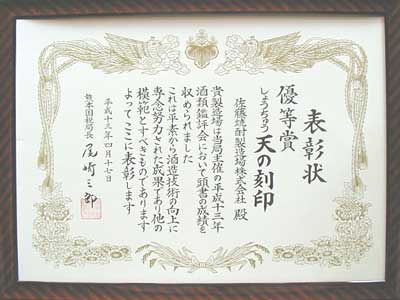 表彰状
優等賞
しょうちゅう 天の刻印
佐藤焼酎製造場株式会社 殿
貴製造場は当局主催の平成十三年
酒類鑑評会において頭書の成績を
収められました
これは平素から酒造技術の向上に
専念努力された成果であり他の
模範とすべきものであります
よってここに表彰します
平成十三年四月十七日
熊本国税局長 尾崎三郎